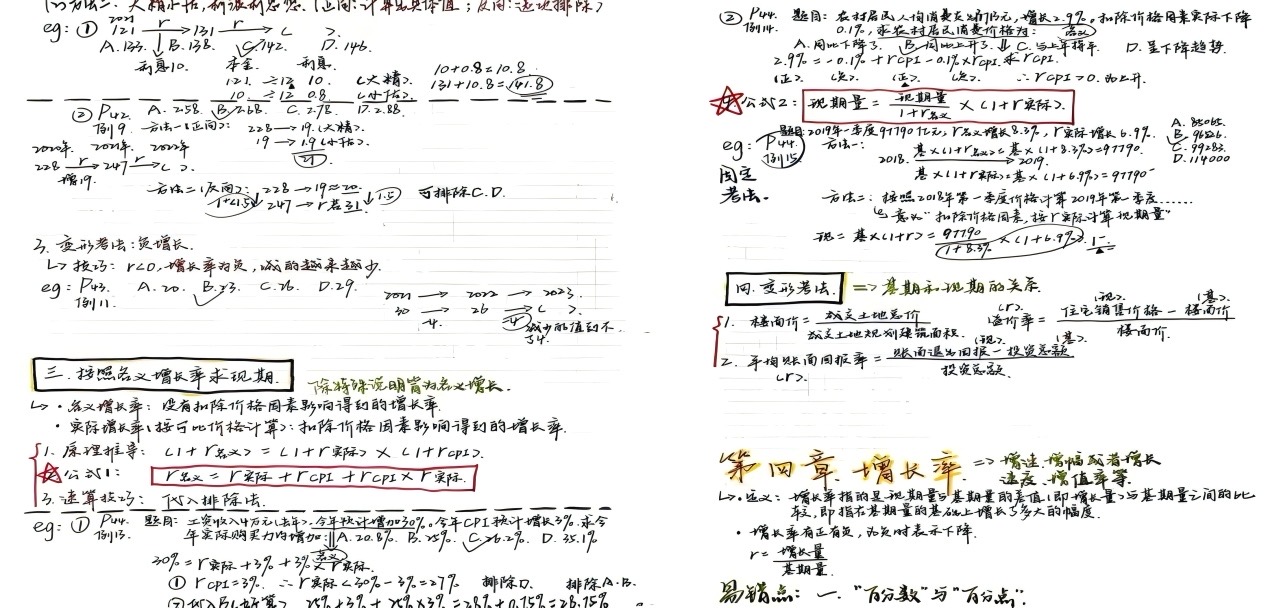 (二)方法二:大精小估,利滚利思想.(正向:计算出具体值;反向:逐项排除)
eg: ① 2021
121 —r→ 131 —r→ ( ).
A.133. B.138. C.142 D.146.
利息10. 本金. 利息.
121. →12 10. (大精).
10. →12 0.8. (小估).
10+0.8=10.8
131+10.8=141.8
② P42. 例9. A.258. B.268. C.278. D.288.
方法一(正向): 228→19.(大精).
19→1.9(小估).
21
2020年. 2021年. 2022年
228 —r→ 247 —r→ ( ).
增19.
方法二(反向): 228→19≈20.
1+(1.5) 247→r若31. 1.5 可排除C.D.
3. 变形考法:负增长.
↳ 技巧: r<0,增长率为负,减的越来越少.
eg: P43. 例11. A.20. B.23. C.26. D.29.
2021 → 2022 → 2023.
30 → 26 → ( ).
-4. -4 减少的值到不了4.
三.按照名义增长率求现期. 除特殊说明皆为名义增长.
↳ · 名义增长率: 没有扣除价格因素影响得到的增长率.
· 实际增长率(按可比价格计算): 扣除价格因素影响得到的增长率.
1. 原理推导: (1+r名义) = (1+r实际) × (1+rCPI).
☆公式1: r名义 = r实际 + rCPI + rCPI × r实际.
3. 速算技巧: 代入排除法.
eg: ① P44. 例13. 题目: 工资收入4万元(去年).今年预计增加30%.今年CPI预计增长3%.求今
年实际购买力约增加: A.20.8% B.25%. C.26.2%. D.35.1%
名义
30% = r实际+3%+3%×r实际.
① rCPI=3%. ∴ r实际<30%-3%=27% 排除D. 排除A.B.
②代入B(好算). 25%+3%+25%×3%=28%+0.75%=28.75%
② P44. 例14. 题目: 农村居民人均消费支出2713元,增长2.9%.扣除价格因素实际下降
0.1%,求农村居民消费价格为: 名义
A.同比下降了. B.同比上升了. C.与上年持平. D.呈下降趋势.
2.9% = -0.1% + rCPI - 0.1%×rCPI.求rCPI.
(正). (负). (正). (负). ∴ rCPI>0.为上升.
☆公式2: 现期量 = 现期量/1+r名义 × (1+r实际).
eg: P44. 例15. 题目:2019年一季度97790亿元,r名义增长8.3%,r实际增长6.9%.
A. 85065.
B. 96526.
C. 99283.
D. 114000
固定考法.
方法一: 基×(1+r名义)=基×(1+8.3%)=97790.
2018. → 2019.
基×(1+r实际)=基×(1+6.9%)=97790⁻
方法二: 按照2018年第一季度价格计算2019年第一季度……
↳意义"扣除价格因素,按r实际计算现期量"
现=基×(1+r)= 97790/1+8.3% ×(1+6.9%). 1⁻.
四.变形考法. => 基期和现期的关系.
1. 楼面价 = 成交土地总价/成交土地规划建筑面积. (r). 溢价率 = (现). 住宅销售价格 - (基). 楼面价/楼面价. (基).
2. 平均账面回报率 = (现). 账面退出回报 - 投资总额/投资总额.
(r).
第四章.增长率 => 增速.增幅或者增长
速度.增值率等.
↳ · 定义: 增长率指的是现期量与基期量的差值(即增长量)与基期量之间的比
较,即指在基期量的基础上增长了多大的幅度.
· 增长率有正有负,为负时表示下降.
r = 增长量/基期量.
易错点: 一. "百分数"与"百分点".